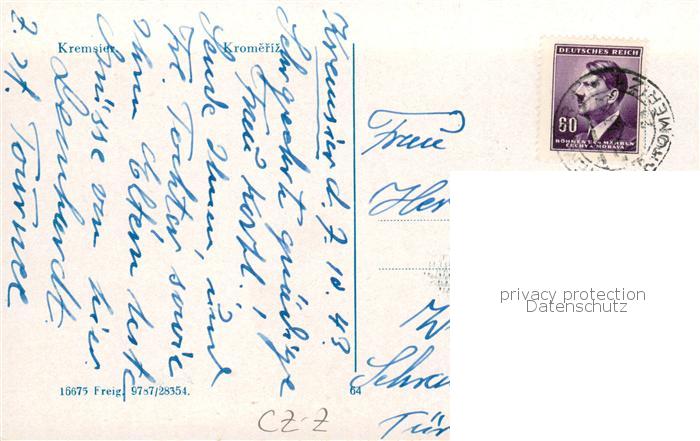 Kremsier. Kroměříž.
Kremsier d. 7. 10. 43
Sehrgeehrte gnädige
Frau
Sende Ihnen, und
Frl. Tochter sowie
Ihren Eltern beste
Grüsse von hier
Leonhardt
z. Zt. Tournee
16675 Freig. 9787/28354.
64
CZ-Z
DEUTSCHES REICH
60
BÖHMEN U. MÄHREN
ČECHY A MORAVA
Frau
Her
W
Schra
Tür
privacy protection
Datenschutz